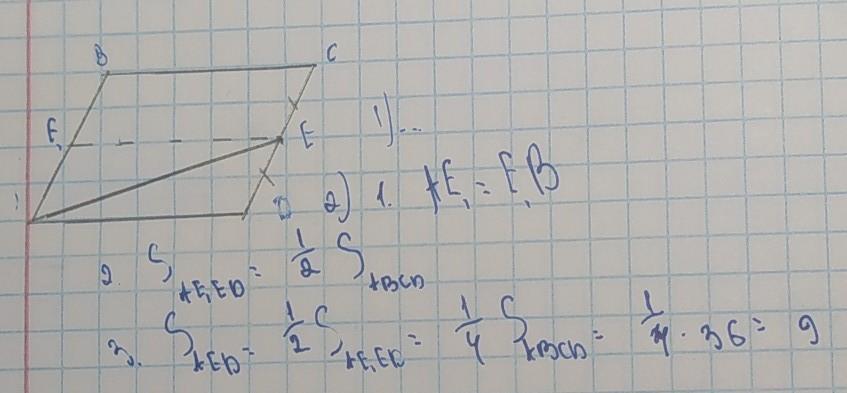 B
C
E₁
E
D
1)...
2) 1. AE₁ = E₁B
2. S_AE₁ED = 1/2 S_ABCD
3. S_AED = 1/2 S_AE₁ED = 1/4 S_ABCD = 1/4 · 36 = 9